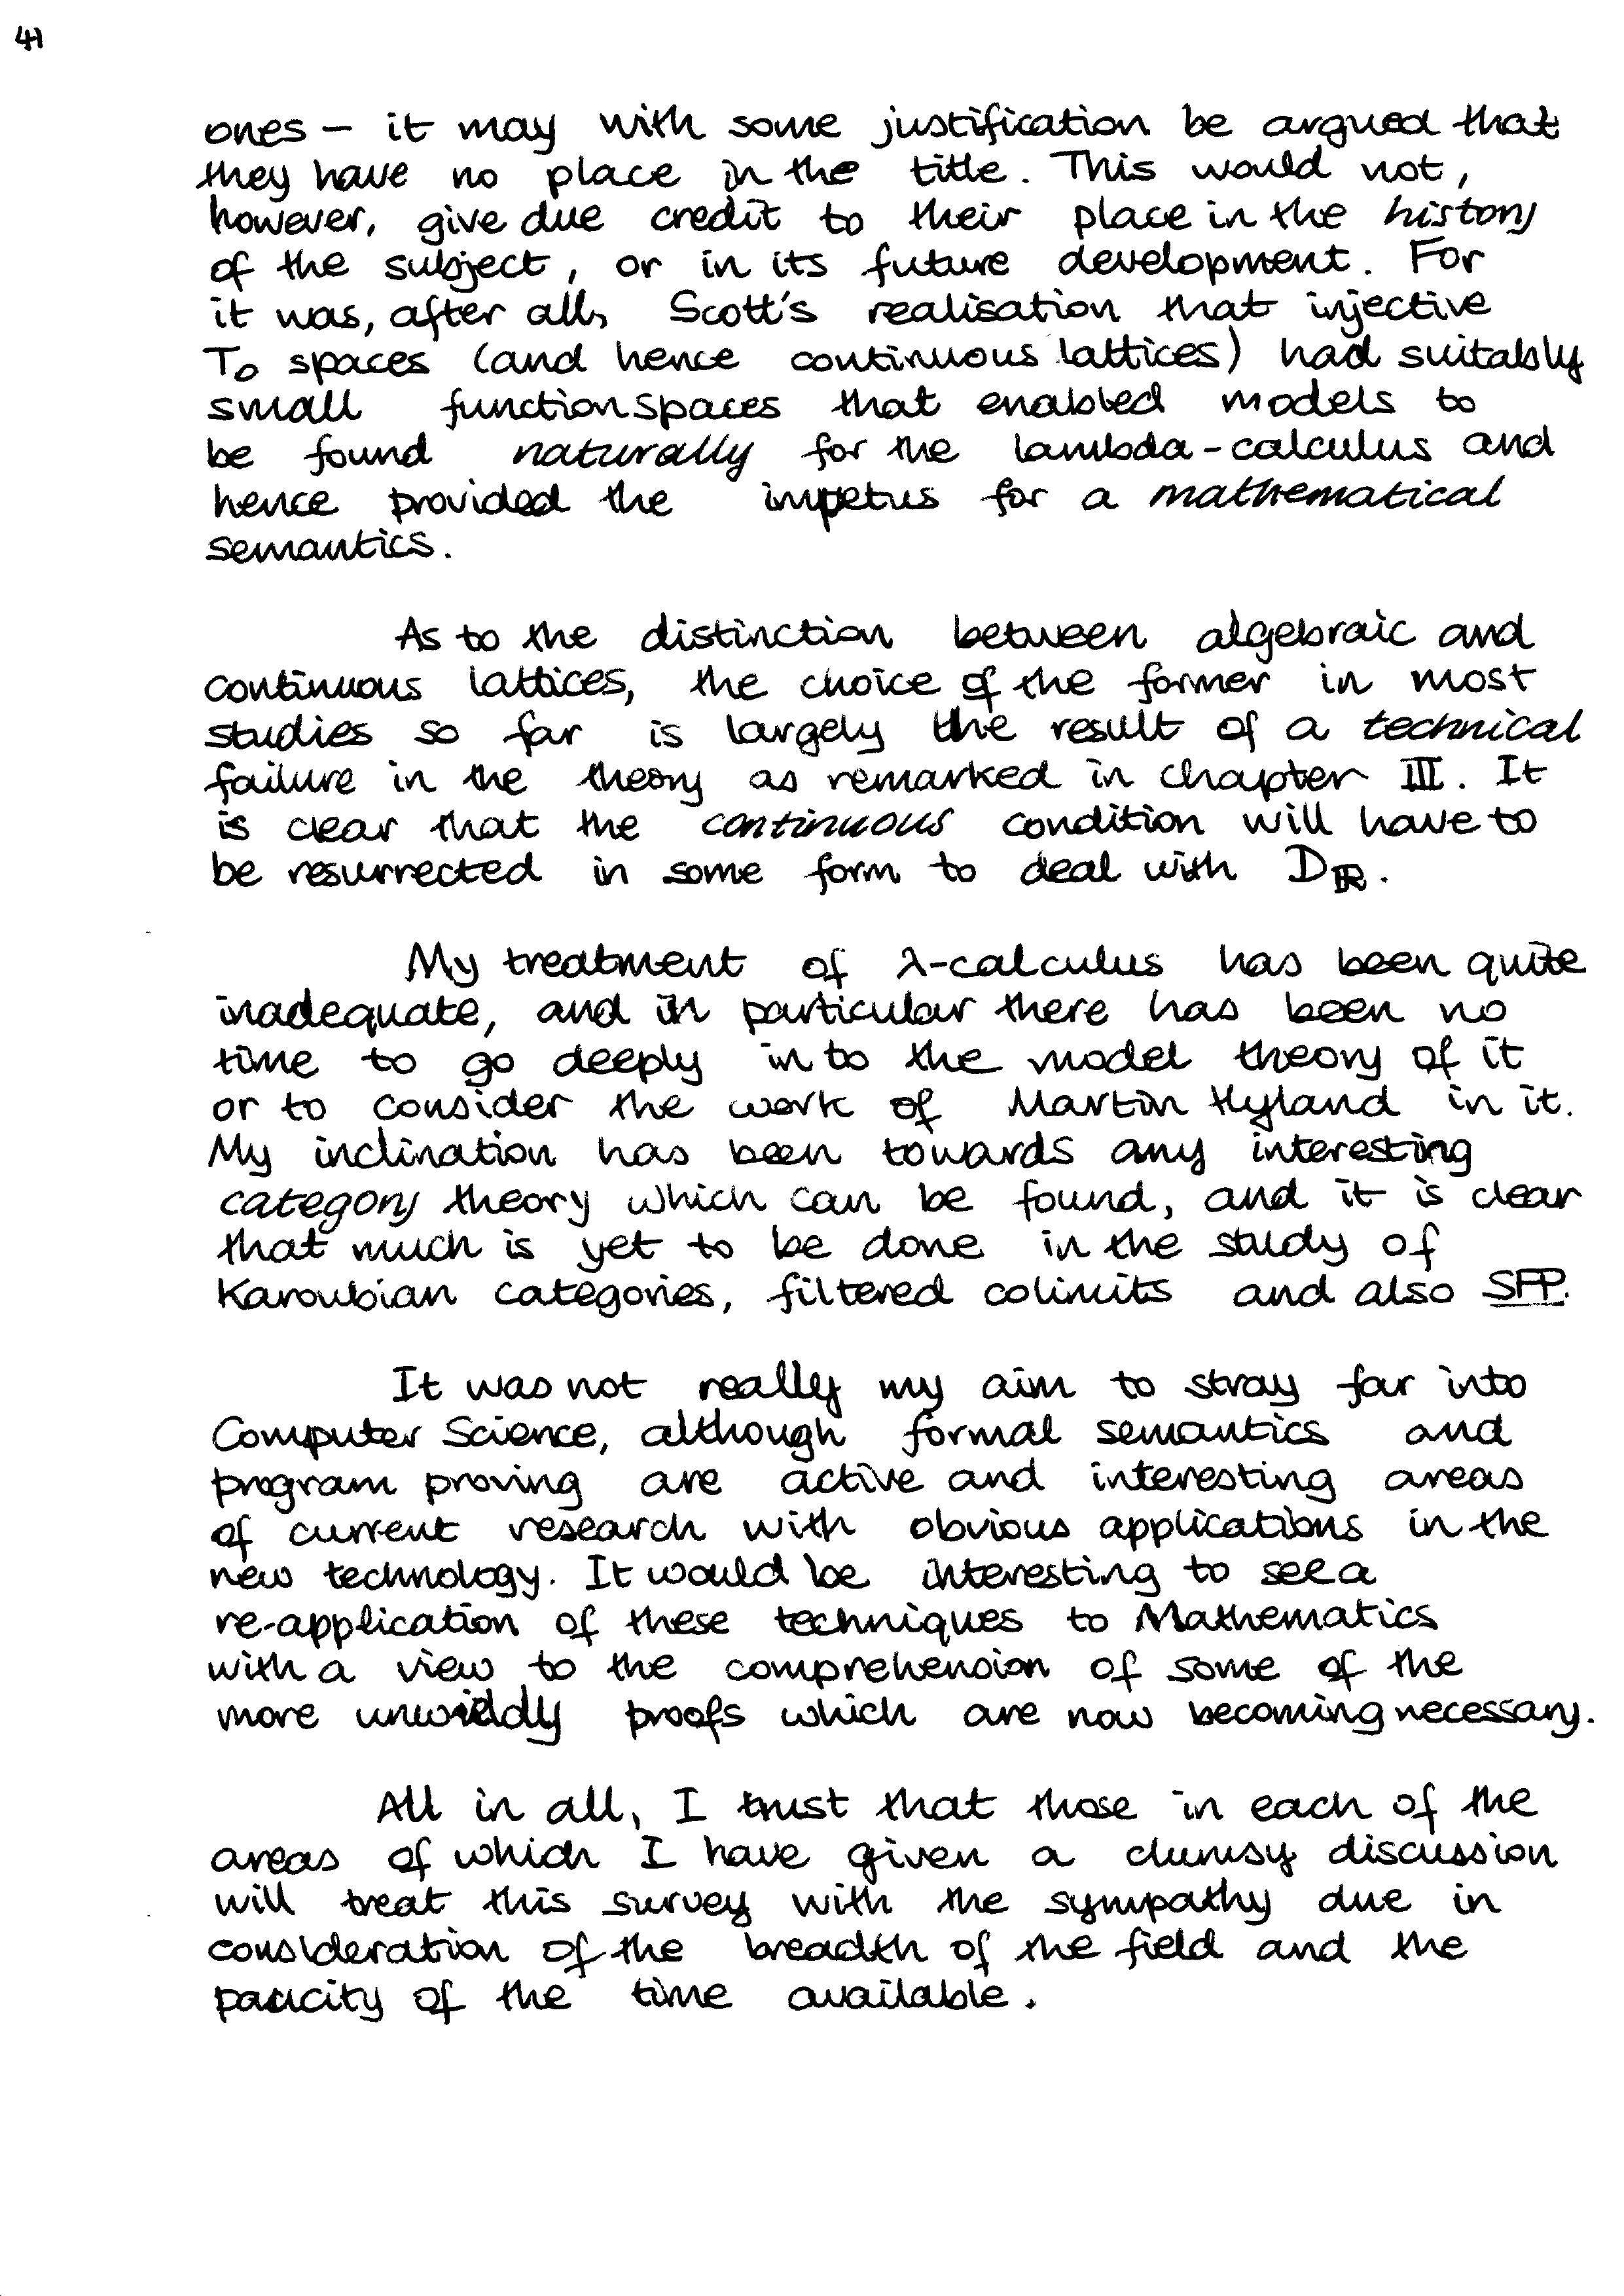 41
ones – it may with some justification be argued that
they have no place in the title. This would not,
however, give due credit to their place in the history
of the subject, or in its future development. For
it was, after all, Scott's realisation that injective
T₀ spaces (and hence continuous lattices) had suitably
small function spaces that enabled models to
be found naturally for the lambda-calculus and
hence provided the impetus for a mathematical
semantics.
As to the distinction between algebraic and
continuous lattices, the choice of the former in most
studies so far is largely the result of a technical
failure in the theory as remarked in chapter III. It
is clear that the continuous condition will have to
be resurrected in some form to deal with Dℝ.
My treatment of λ-calculus has been quite
inadequate, and in particular there has been no
time to go deeply in to the model theory of it
or to consider the work of Martin Hyland in it.
My inclination has been towards any interesting
category theory which can be found, and it is clear
that much is yet to be done in the study of
Karoubian categories, filtered colimits and also SFP.
It was not really my aim to stray far into
Computer Science, although formal semantics and
program proving are active and interesting areas
of current research with obvious applications in the
new technology. It would be interesting to see a
re-application of these techniques to Mathematics
with a view to the comprehension of some of the
more unwieldly proofs which are now becoming necessary.
All in all, I trust that those in each of the
areas of which I have given a clumsy discussion
will treat this survey with the sympathy due in
consideration of the breadth of the field and the
paucity of the time available.